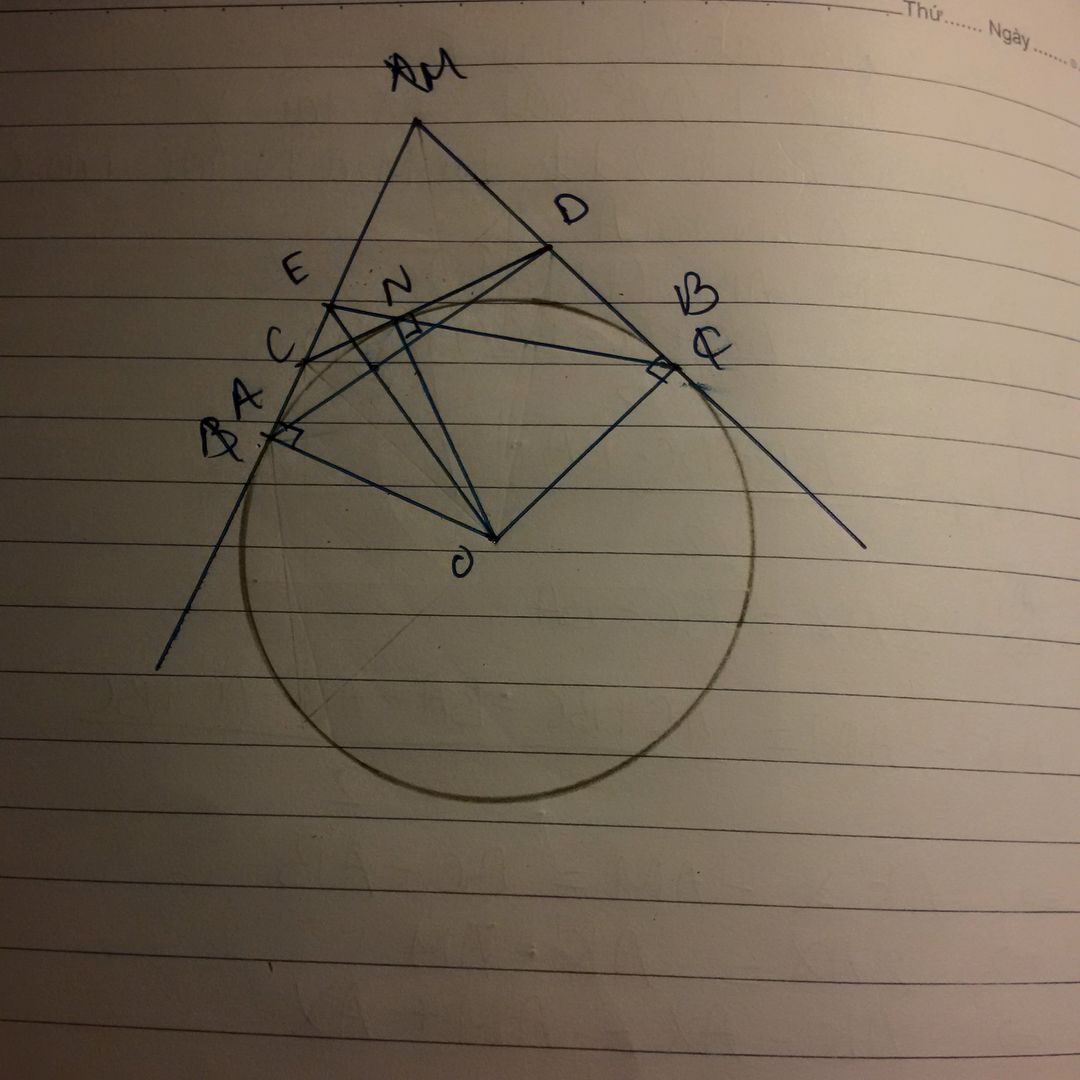 Thứ....... Ngày.......
M
D
E
N
B
C
A
O